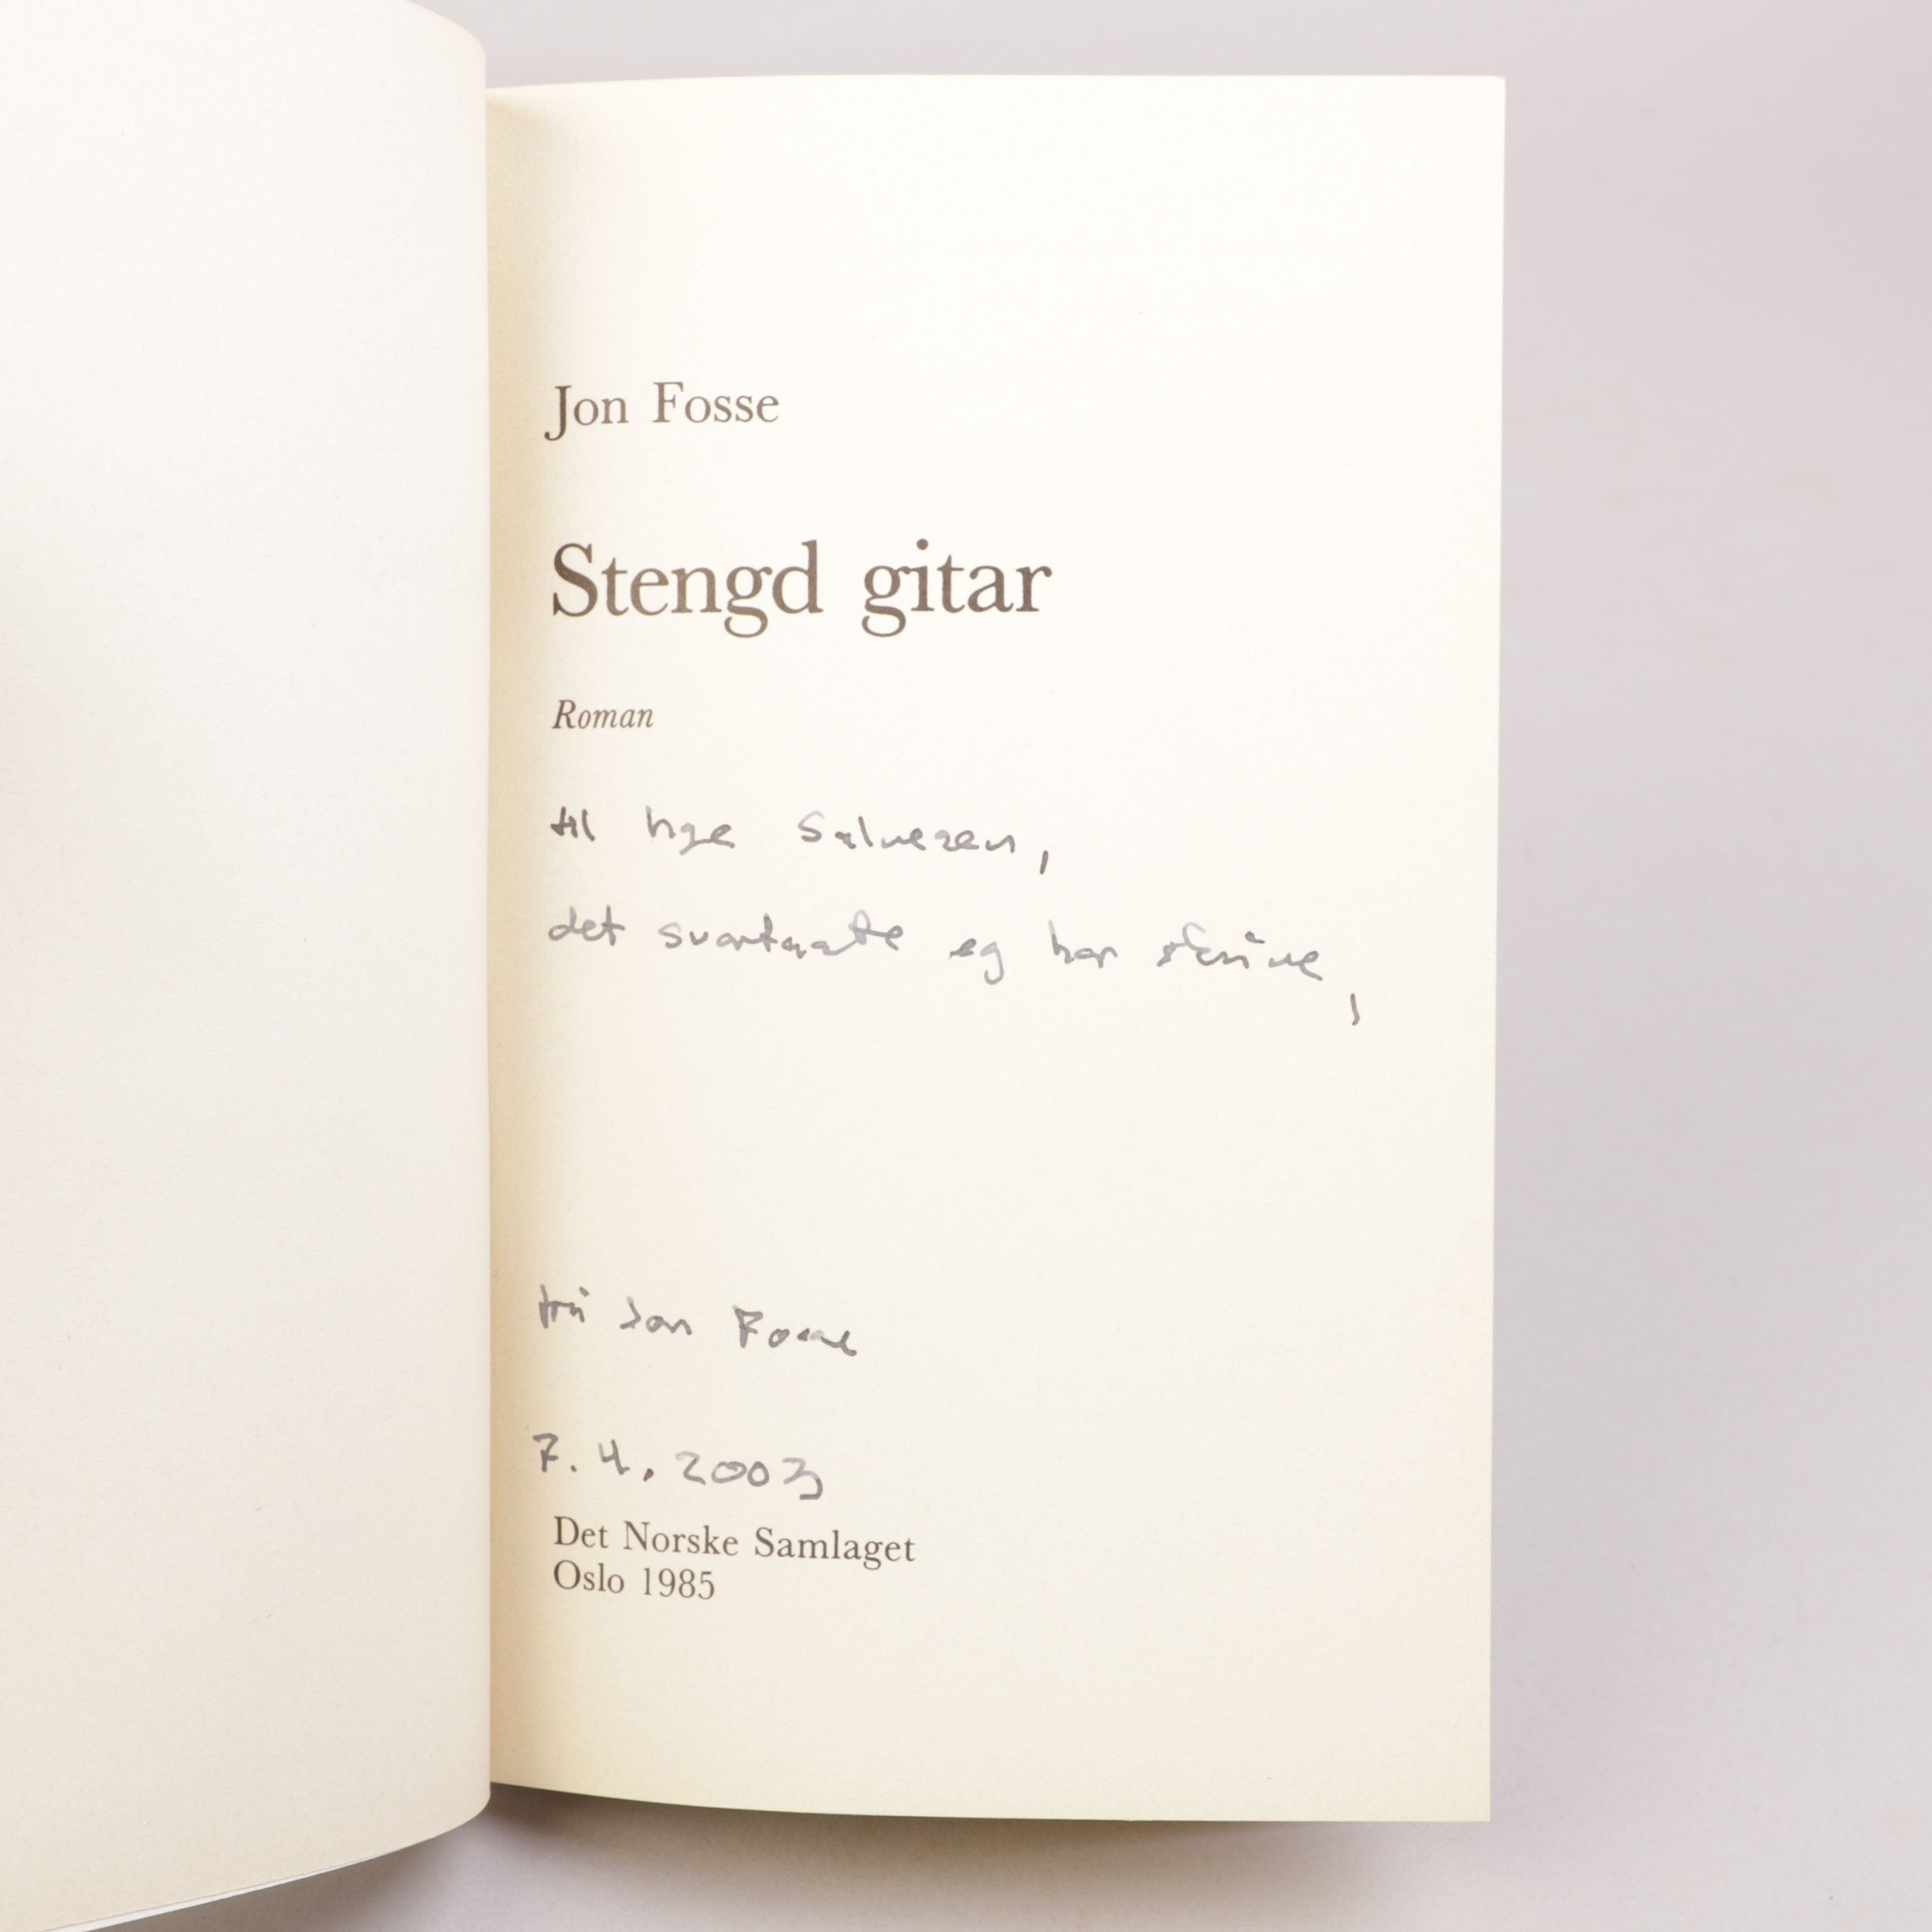 Jon Fosse
Stengd gitar
Roman
til Inge Salvesen,
det svartaste eg har skrive,
frå Jon Fosse
7.4.2003
Det Norske Samlaget
Oslo 1985